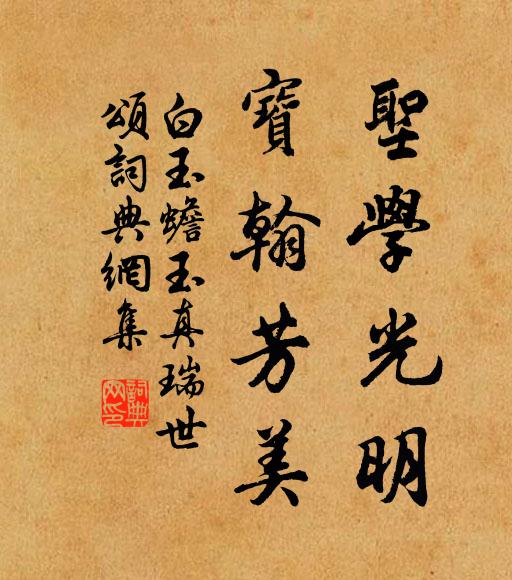 聖學光明
寶翰芳美
白玉蟾玉真瑞世
頌詞典網集
詞典
网印